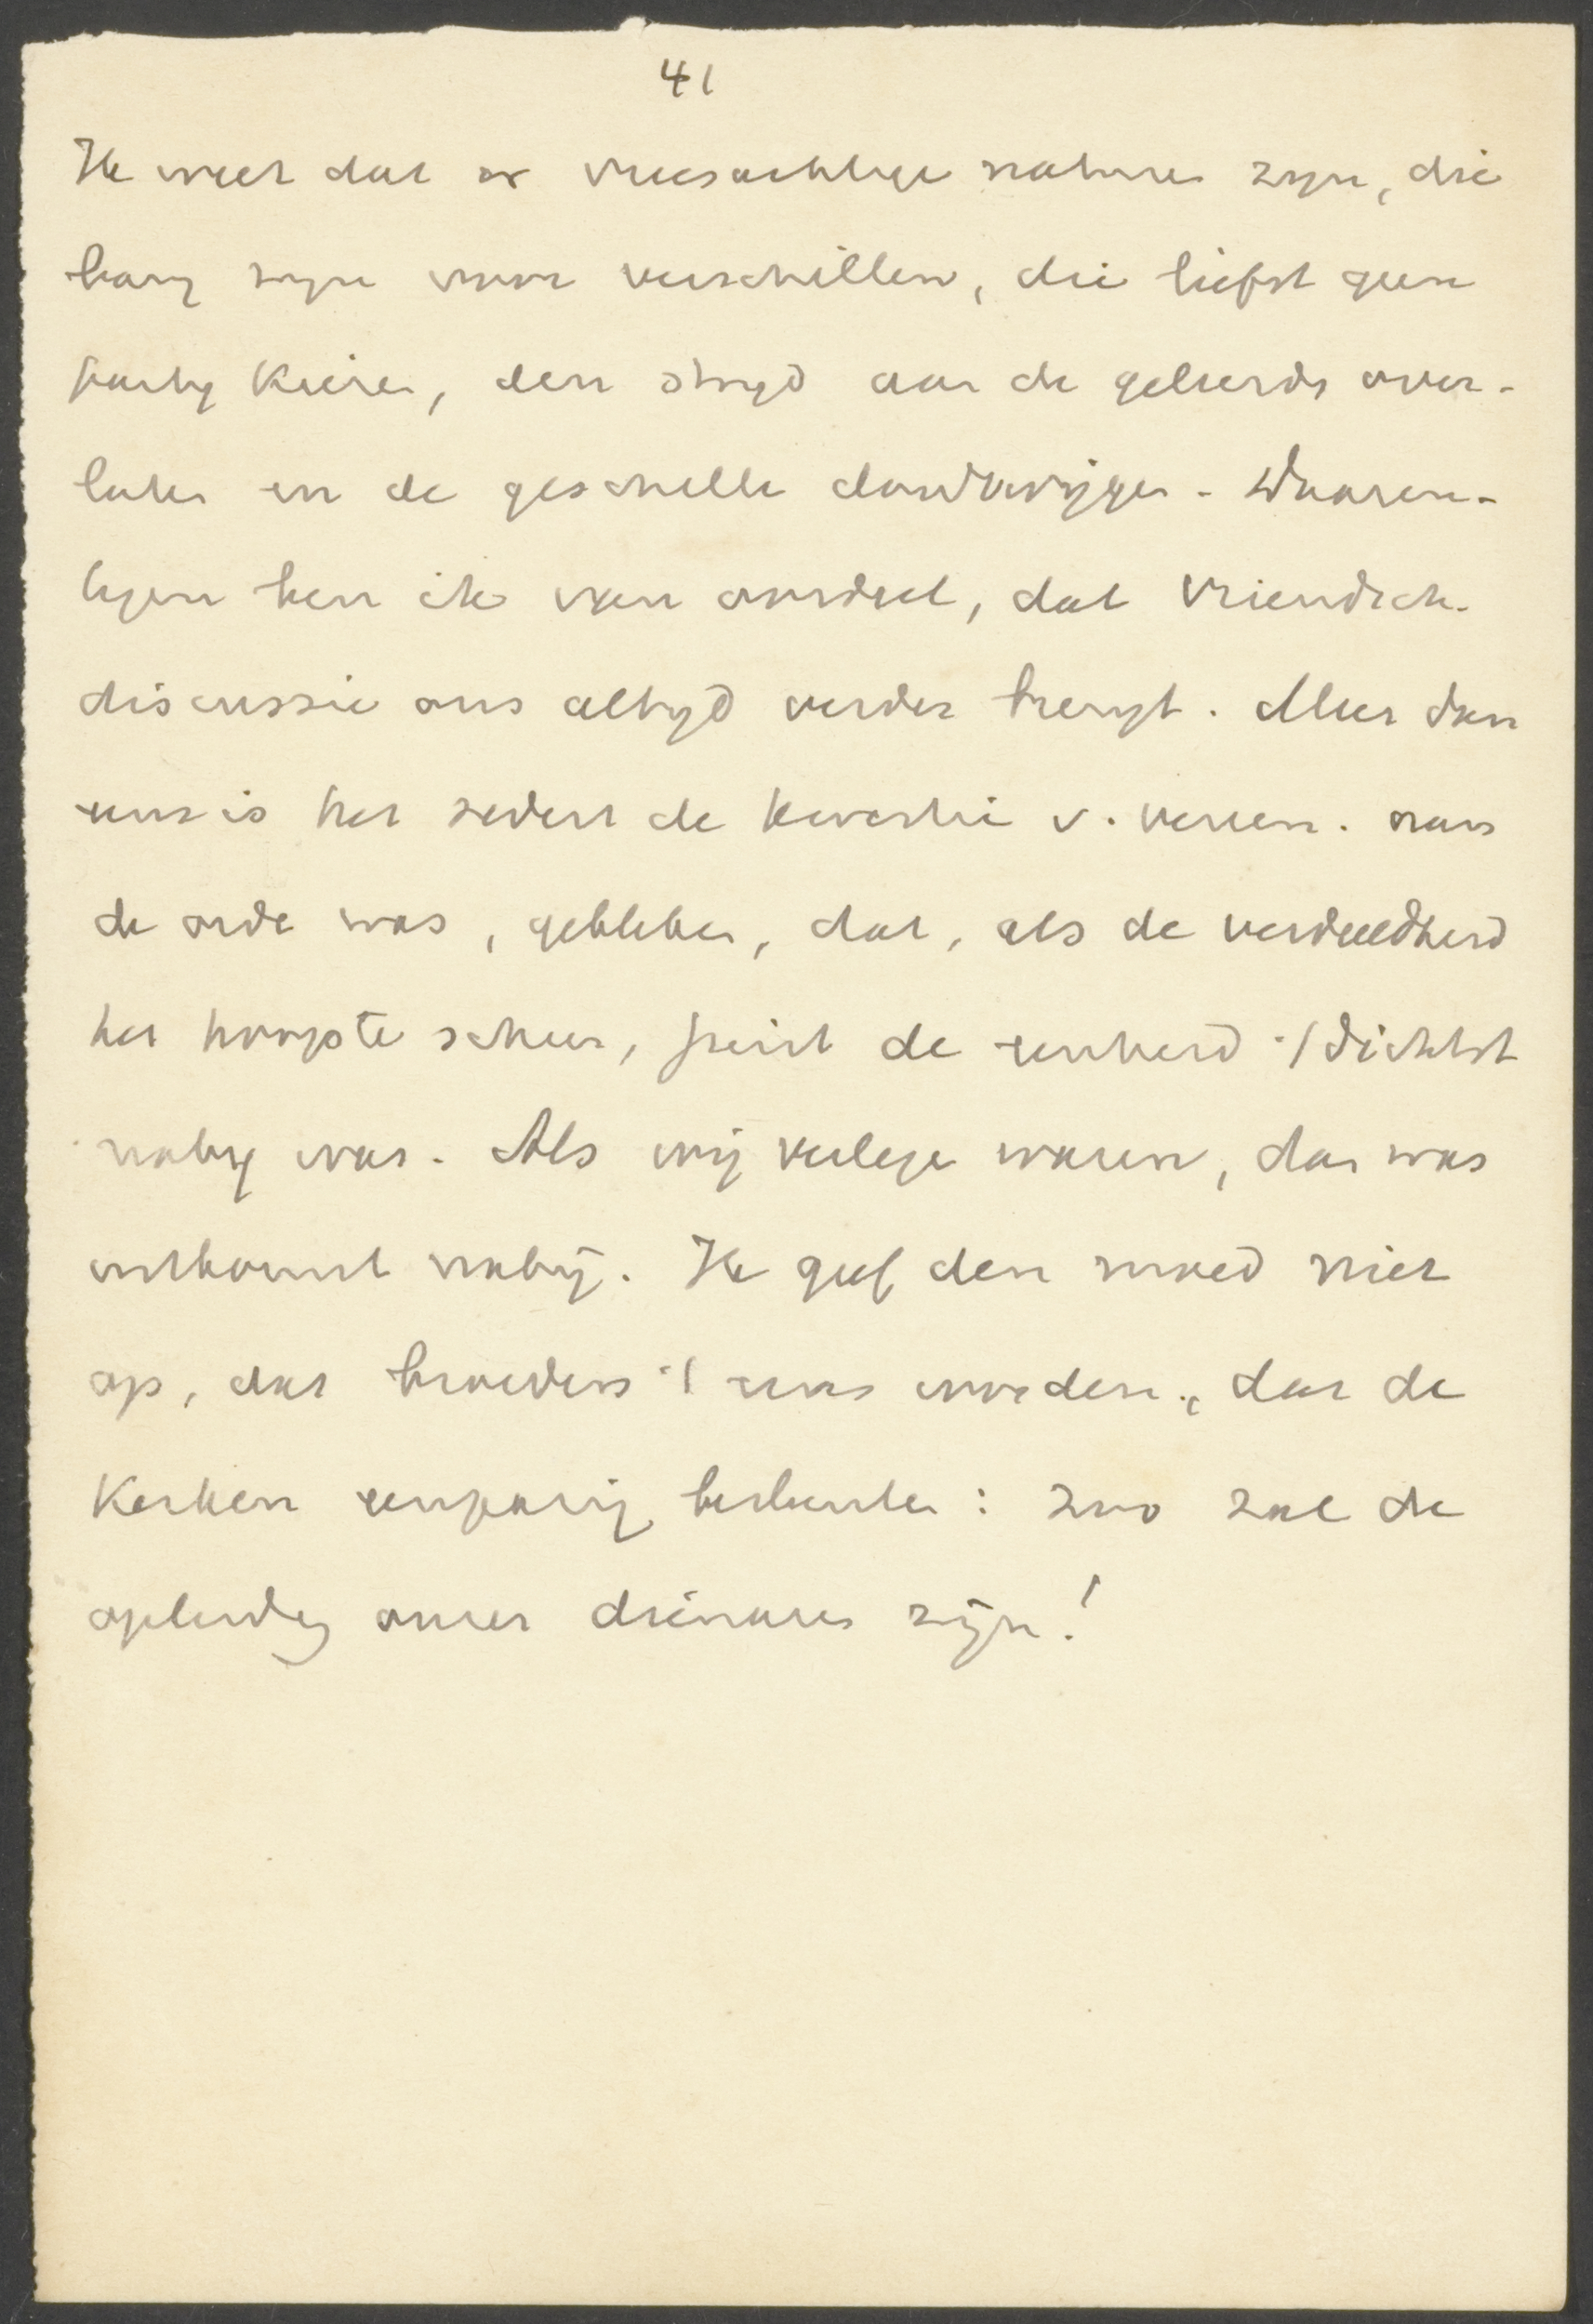 41
Ik weet dat er vreesachtige naturen zijn, die
bang zijn voor verschillen, die liefst geen
partij kiezen, den strijd aan de geleerde over-
laten en de geschillen doodzwijgen. Waaren-
tegen ben ik van oordeel, dat vriendsch.
discussie ons altijd verder brengt. Meer dan
eens is het sedert de kwestie v. vereen. aan
de orde was, gebleken, dat, als de verdeeldheid
het hoogste scheen, juist de eenheid 't dichtst
nabij was. Als wij verlegen waren, dan was
uitkomst nabij. Ik geef den moed niet
op, dat broeders 't eens worden, dat de
Kerken eenparig besluiten: zoo zal de
opleiding onzer dienaren zijn!